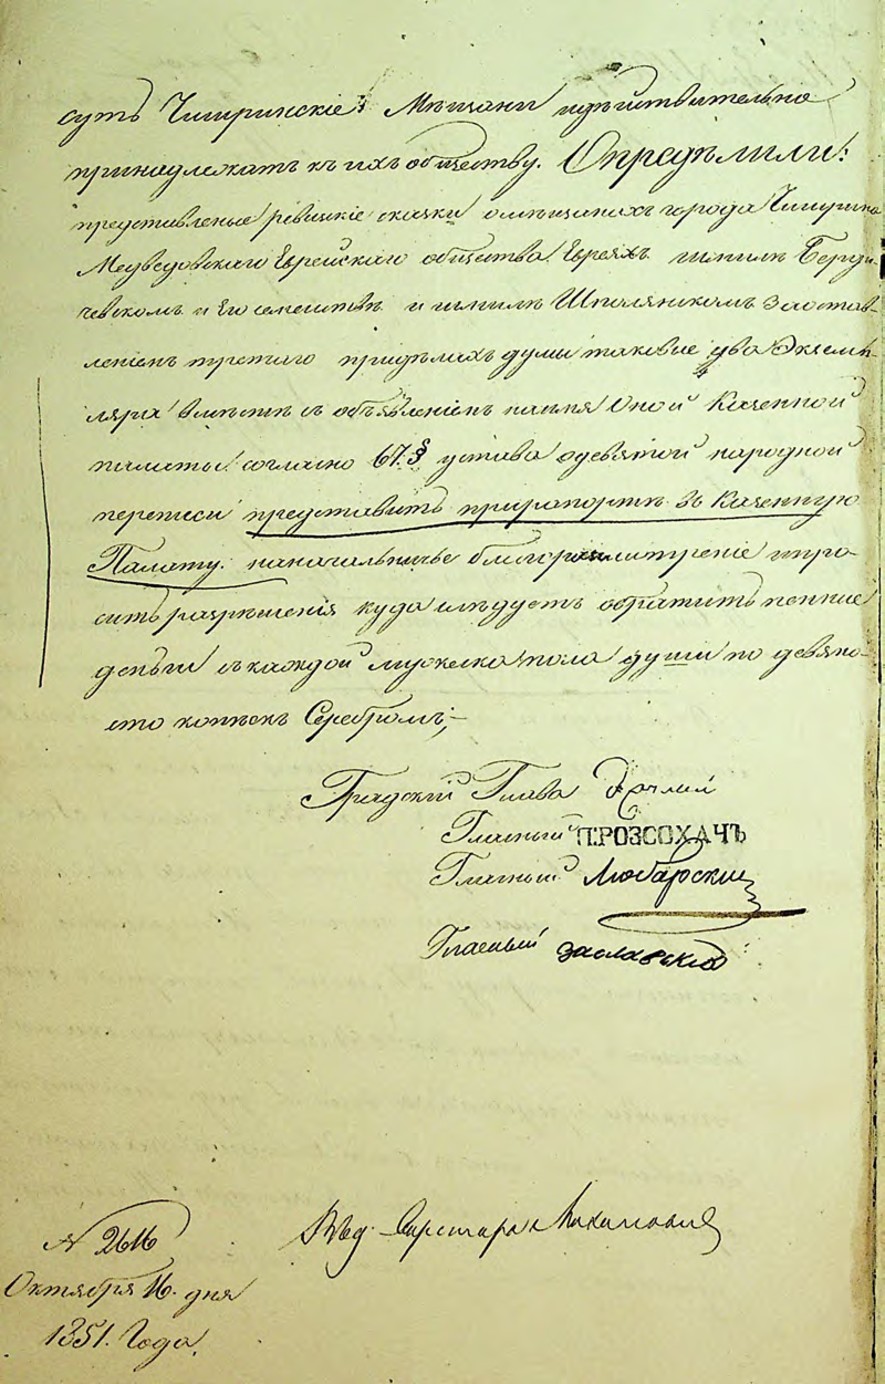 суть Чигринскіе Мѣщани идѣйствительно
принадлежатъ къ ихъ обществу. Опредѣлили:
представленые ревискіе сказки омѣщанахъ города Чигрина
Медведовскаго Еврейскаго общества Евреяхъ Бердич-
чевскомъ и Его семействѣ и Шполянскомъ Заостав-
леніемъ третаго придѣлахъ думы таковые два Экземп-
ляра вместѣ съ объявленіемъ наимя Оной Казенной
палаты согласно 67. § устава одевятой народной
переписи представить прирапортѣ въ Казенную
Палату. наначальничье благоразсмотреніе ипро-
сить разрѣшенія куда слѣдуетъ обратить пенные
деньги съ каждой мужеска пола души по девяно-
сто копѣекъ Серебромъ;
Градскій Глава
Гласный П:РОЗСОХАЧЪ
Гласный Любарскій
Гласный заславский
№ 2616
Октября 16. дня
1851. Года.